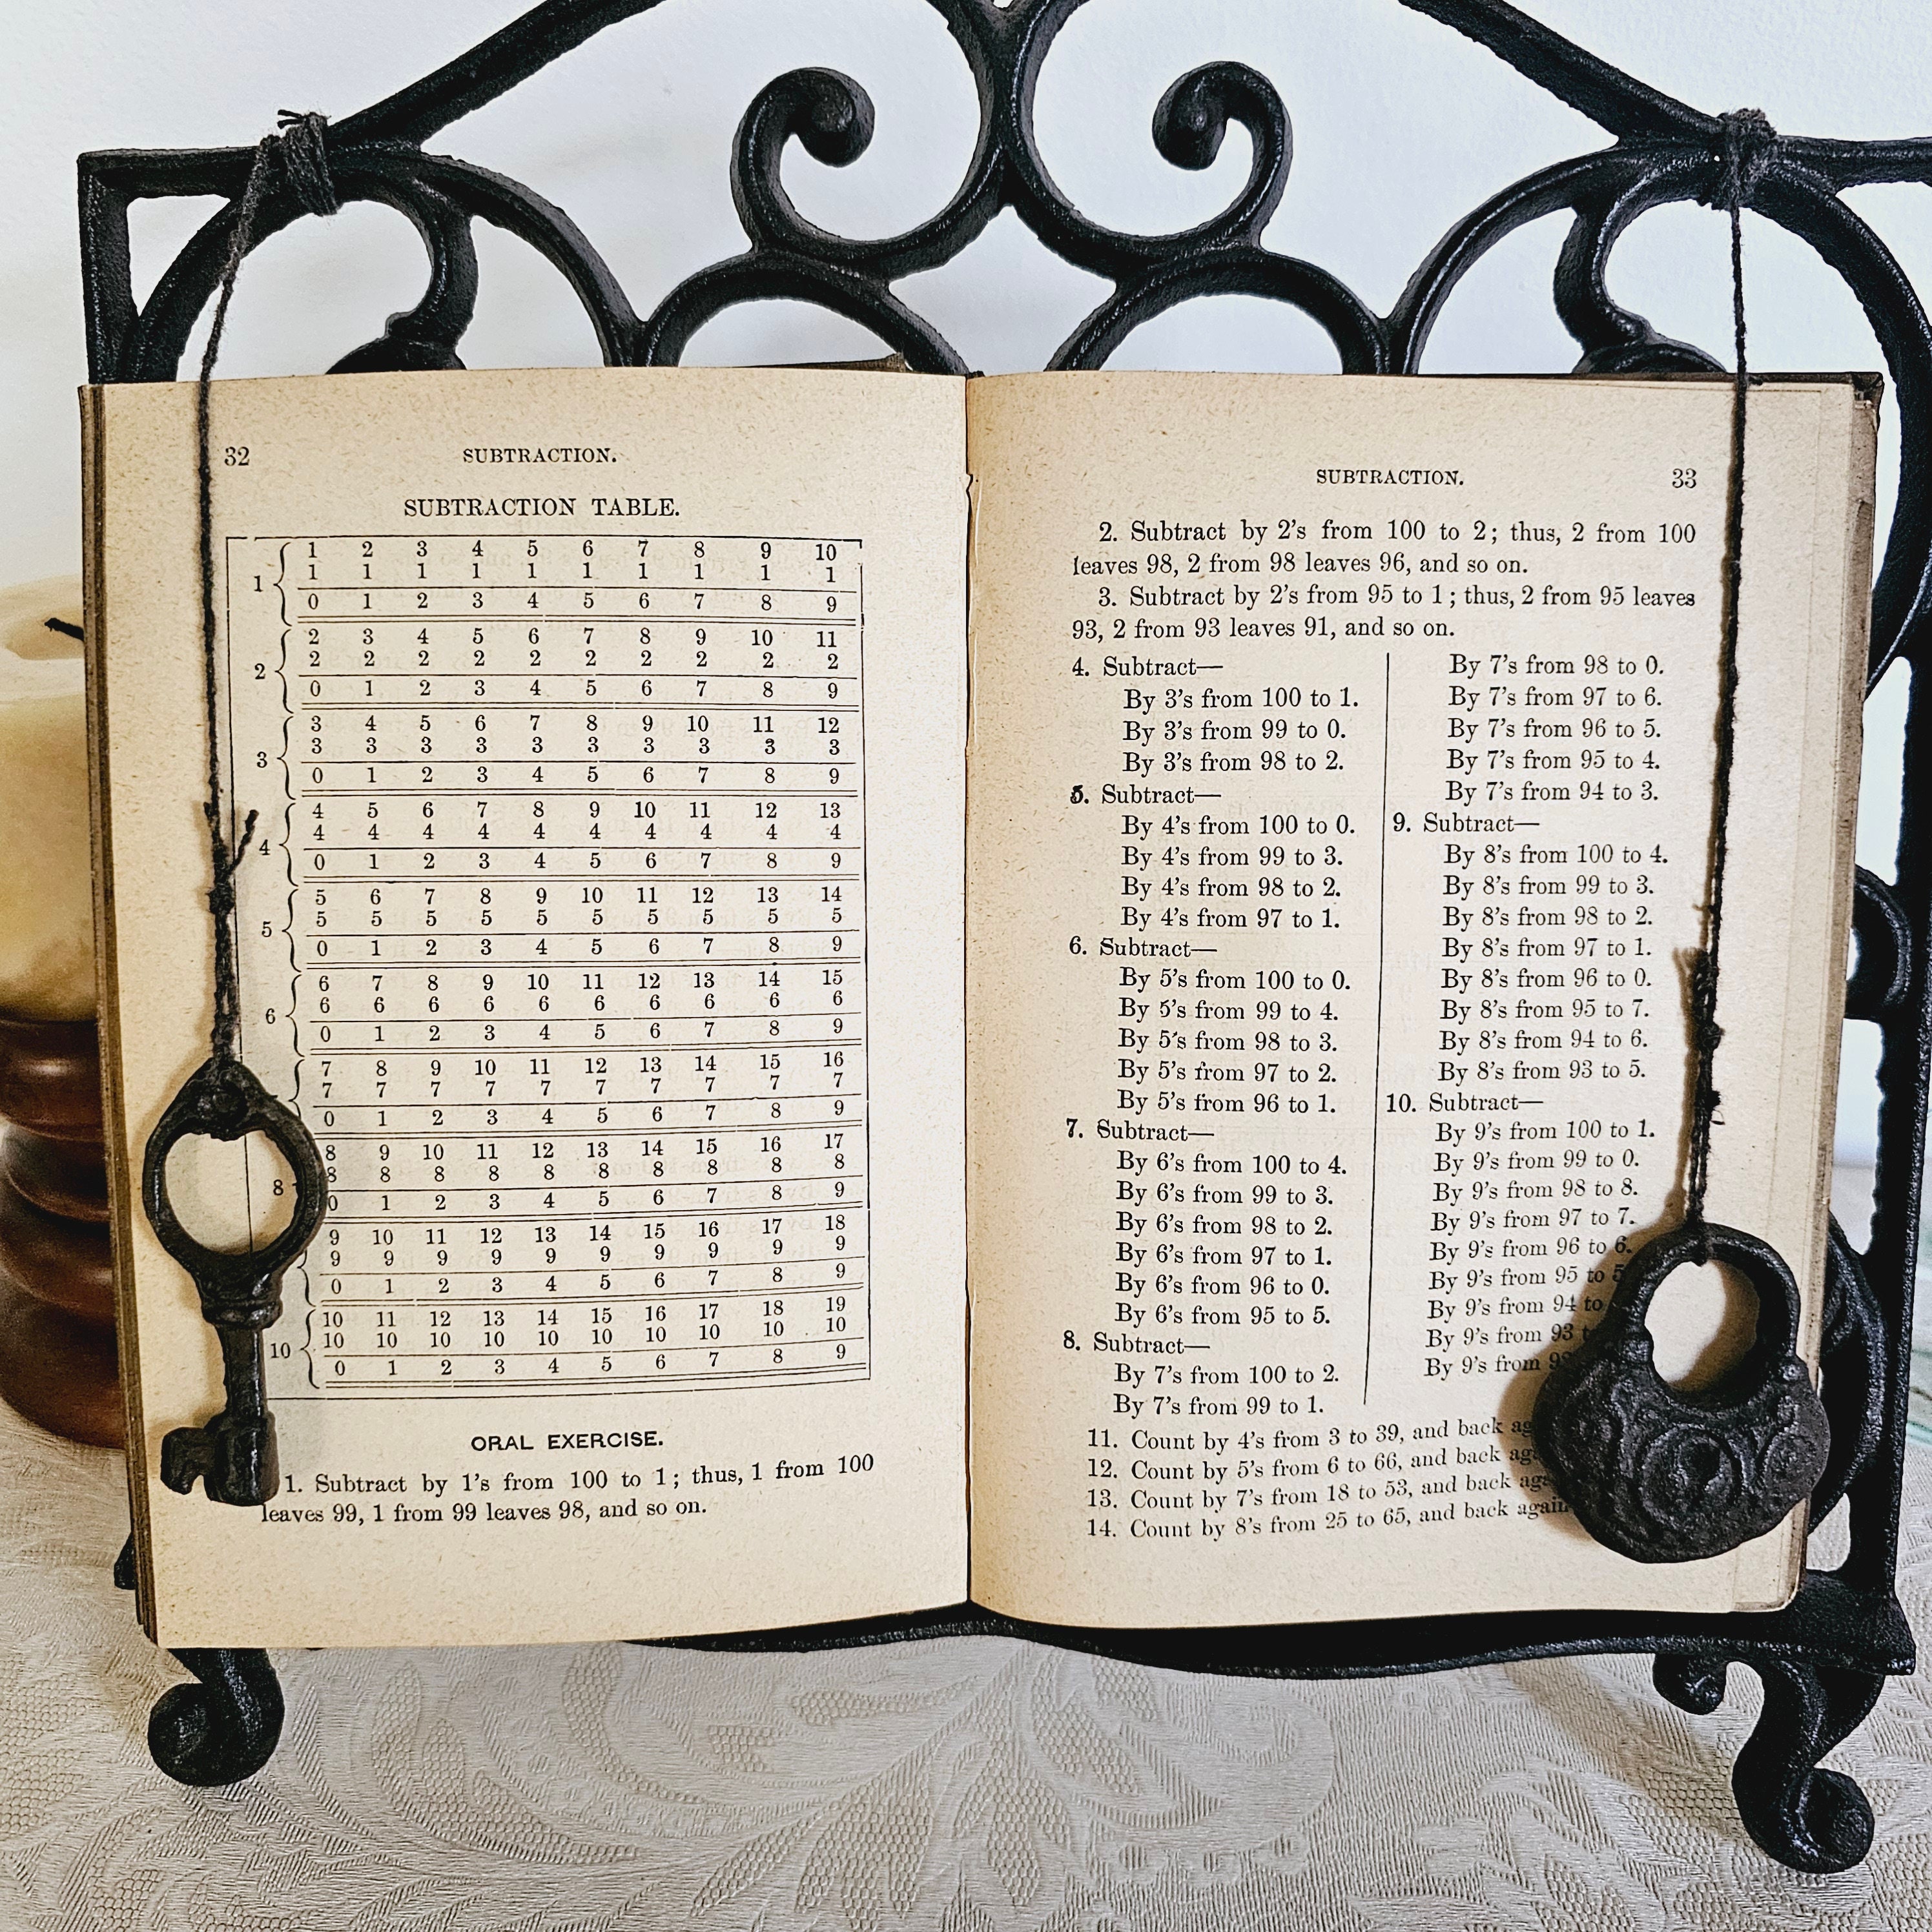 32 SUBTRACTION.
SUBTRACTION TABLE.
1 2 3 4 5 6 7 8 9 10
1 1 1 1 1 1 1 1 1 1 1
0 1 2 3 4 5 6 7 8 9
2 3 4 5 6 7 8 9 10 11
2 2 2 2 2 2 2 2 2 2 2
0 1 2 3 4 5 6 7 8 9
3 4 5 6 7 8 9 10 11 12
3 3 3 3 3 3 3 3 3 3 3
0 1 2 3 4 5 6 7 8 9
4 5 6 7 8 9 10 11 12 13
4 4 4 4 4 4 4 4 4 4 4
0 1 2 3 4 5 6 7 8 9
5 6 7 8 9 10 11 12 13 14
5 5 5 5 5 5 5 5 5 5 5
0 1 2 3 4 5 6 7 8 9
6 7 8 9 10 11 12 13 14 15
6 6 6 6 6 6 6 6 6 6 6
0 1 2 3 4 5 6 7 8 9
7 8 9 10 11 12 13 14 15 16
7 7 7 7 7 7 7 7 7 7
0 1 2 3 4 5 6 7 8 9
8 9 10 11 12 13 14 15 16 17
8 8 8 8 8 8 8 8 8 8 8
0 1 2 3 4 5 6 7 8 9
9 10 11 12 13 14 15 16 17 18
9 9 9 9 9 9 9 9 9 9
0 1 2 3 4 5 6 7 8 9
10 11 12 13 14 15 16 17 18 19
10 10 10 10 10 10 10 10 10 10 10
0 1 2 3 4 5 6 7 8 9
ORAL EXERCISE.
1. Subtract by 1's from 100 to 1; thus, 1 from 100
leaves 99, 1 from 99 leaves 98, and so on.
SUBTRACTION. 33
2. Subtract by 2's from 100 to 2; thus, 2 from 100
leaves 98, 2 from 98 leaves 96, and so on.
3. Subtract by 2's from 95 to 1; thus, 2 from 95 leaves
93, 2 from 93 leaves 91, and so on.
4. Subtract—
By 3's from 100 to 1.
By 3's from 99 to 0.
By 3's from 98 to 2.
5. Subtract—
By 4's from 100 to 0.
By 4's from 99 to 3.
By 4's from 98 to 2.
By 4's from 97 to 1.
6. Subtract—
By 5's from 100 to 0.
By 5's from 99 to 4.
By 5's from 98 to 3.
By 5's from 97 to 2.
By 5's from 96 to 1.
7. Subtract—
By 6's from 100 to 4.
By 6's from 99 to 3.
By 6's from 98 to 2.
By 6's from 97 to 1.
By 6's from 96 to 0.
By 6's from 95 to 5.
8. Subtract—
By 7's from 100 to 2.
By 7's from 99 to 1.
By 7's from 98 to 0.
By 7's from 97 to 6.
By 7's from 96 to 5.
By 7's from 95 to 4.
By 7's from 94 to 3.
9. Subtract—
By 8's from 100 to 4.
By 8's from 99 to 3.
By 8's from 98 to 2.
By 8's from 97 to 1.
By 8's from 96 to 0.
By 8's from 95 to 7.
By 8's from 94 to 6.
By 8's from 93 to 5.
10. Subtract—
By 9's from 100 to 1.
By 9's from 99 to 0.
By 9's from 98 to 8.
By 9's from 97 to 7.
By 9's from 96 to 6.
By 9's from 95 to 5
By 9's from 94 to
By 9's from 93
By 9's from
11. Count by 4's from 3 to 39, and back
12. Count by 5's from 6 to 66, and back
13. Count by 7's from 18 to 53, and back
14. Count by 8's from 25 to 65, and back again